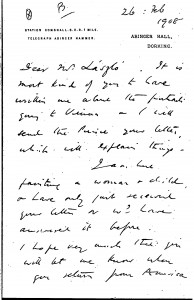 26. Feb
1908
STATION GOMSHALL, S.E.R. 1 MILE.
TELEGRAPH ABINGER HAMMER.
ABINGER HALL,
DORKING.
Dear Mr László. It is
most kind of you to have
written me about the portrait
going to Vienna & I will
send the Prince your letter,
which will explain things.
I am here
painting a woman & child,
& have only just received
your letter or wd have
answered it before.
I hope very much that you
will let me know when
you return from America